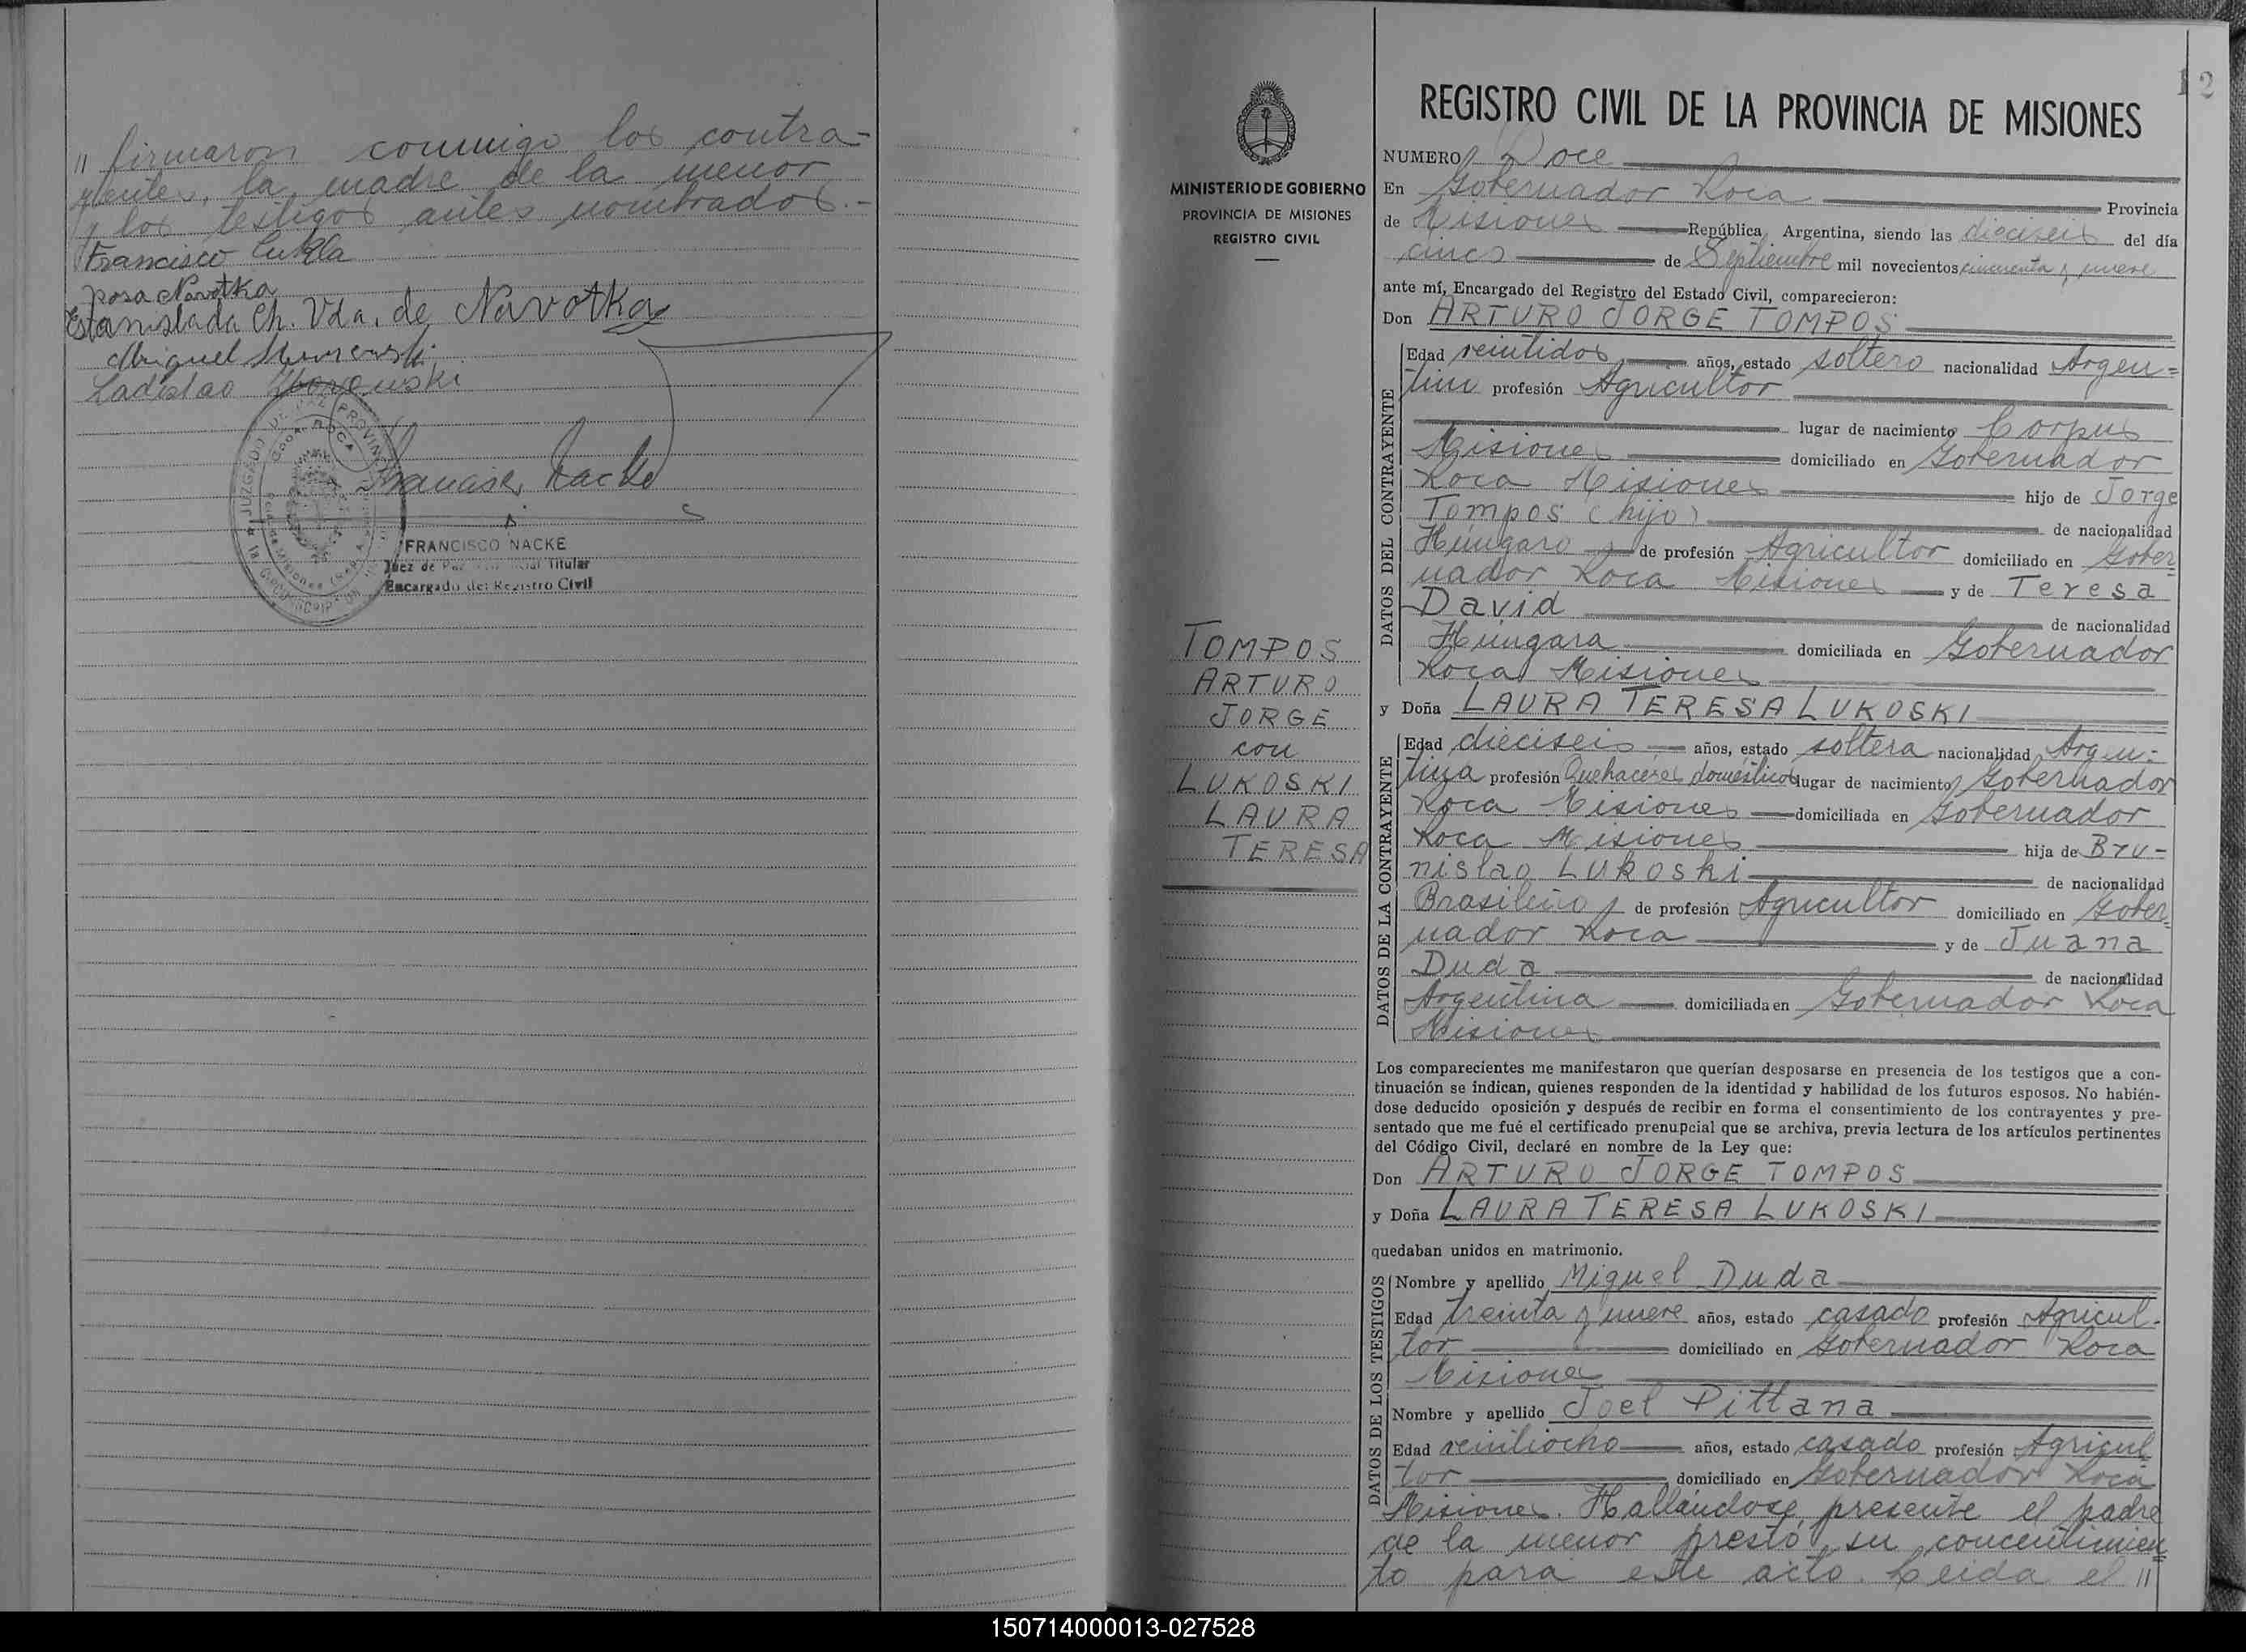 // firmaron conmigo los contra-
yentes, la madre de la menor
y los testigos antes nombrados.-
Francisco Cukla
Rosa Navotka
Estanislada Ch. Vda. de Navotka
Miguel
Ladislao
JUZGADO DE PAZ PROVINCIA
GDOR. ROCA
CIRCUNSCRIPCION
Francisco Nacke
FRANCISCO NACKE
Juez de Paz Titular
Encargado del Registro Civil
12
MINISTERIO DE GOBIERNO
PROVINCIA DE MISIONES
REGISTRO CIVIL
TOMPOS
ARTURO
JORGE
con
LUKOSKI
LAURA
TERESA
REGISTRO CIVIL DE LA PROVINCIA DE MISIONES
NUMERO Doce
En Gobernador Roca Provincia
de Misiones República Argentina, siendo las dieciseis del día
cinco de Septiembre mil novecientos cincuenta y nueve
ante mí, Encargado del Registro del Estado Civil, comparecieron:
Don ARTURO JORGE TOMPOS
DATOS DEL CONTRAYENTE
Edad veintidos años, estado soltero nacionalidad Argen=
tino profesión Agricultor
lugar de nacimiento Corpus
Misiones domiciliado en Gobernador
Roca Misiones hijo de Jorge
Tompos (hijo) de nacionalidad
Húngaro de profesión Agricultor domiciliado en Gober=
nador Roca Misiones y de Teresa
David de nacionalidad
Húngara domiciliada en Gobernador
Roca Misiones
y Doña LAURA TERESA LUKOSKI
DATOS DE LA CONTRAYENTE
Edad dieciseis años, estado soltera nacionalidad Argen=
tina profesión Quehaceres domésticos lugar de nacimiento Gobernador
Roca Misiones domiciliada en Gobernador
Roca Misiones hija de Bru=
nislao Lukoski de nacionalidad
Brasileño de profesión Agricultor domiciliado en Gober=
nador Roca y de Juana
Duda de nacionalidad
Argentina domiciliada en Gobernador Roca
Misiones
Los comparecientes me manifestaron que querían desposarse en presencia de los testigos que a con-
tinuación se indican, quienes responden de la identidad y habilidad de los futuros esposos. No habién-
dose deducido oposición y después de recibir en forma el consentimiento de los contrayentes y pre-
sentado que me fué el certificado prenupcial que se archiva, previa lectura de los artículos pertinentes
del Código Civil, declaré en nombre de la Ley que:
Don ARTURO JORGE TOMPOS
y Doña LAURA TERESA LUKOSKI
quedaban unidos en matrimonio.
DATOS DE LOS TESTIGOS
Nombre y apellido Miguel Duda
Edad treinta y nueve años, estado casado profesión Agricul-
tor domiciliado en Gobernador Roca
Misiones
Nombre y apellido Joel Pittana
Edad veintiocho años, estado casado profesión Agricul
tor domiciliado en Gobernador Roca
Misiones. Hallándose presente el padre
de la menor prestó su concentimien=
to para este acto. Leída el //
150714000013-027528